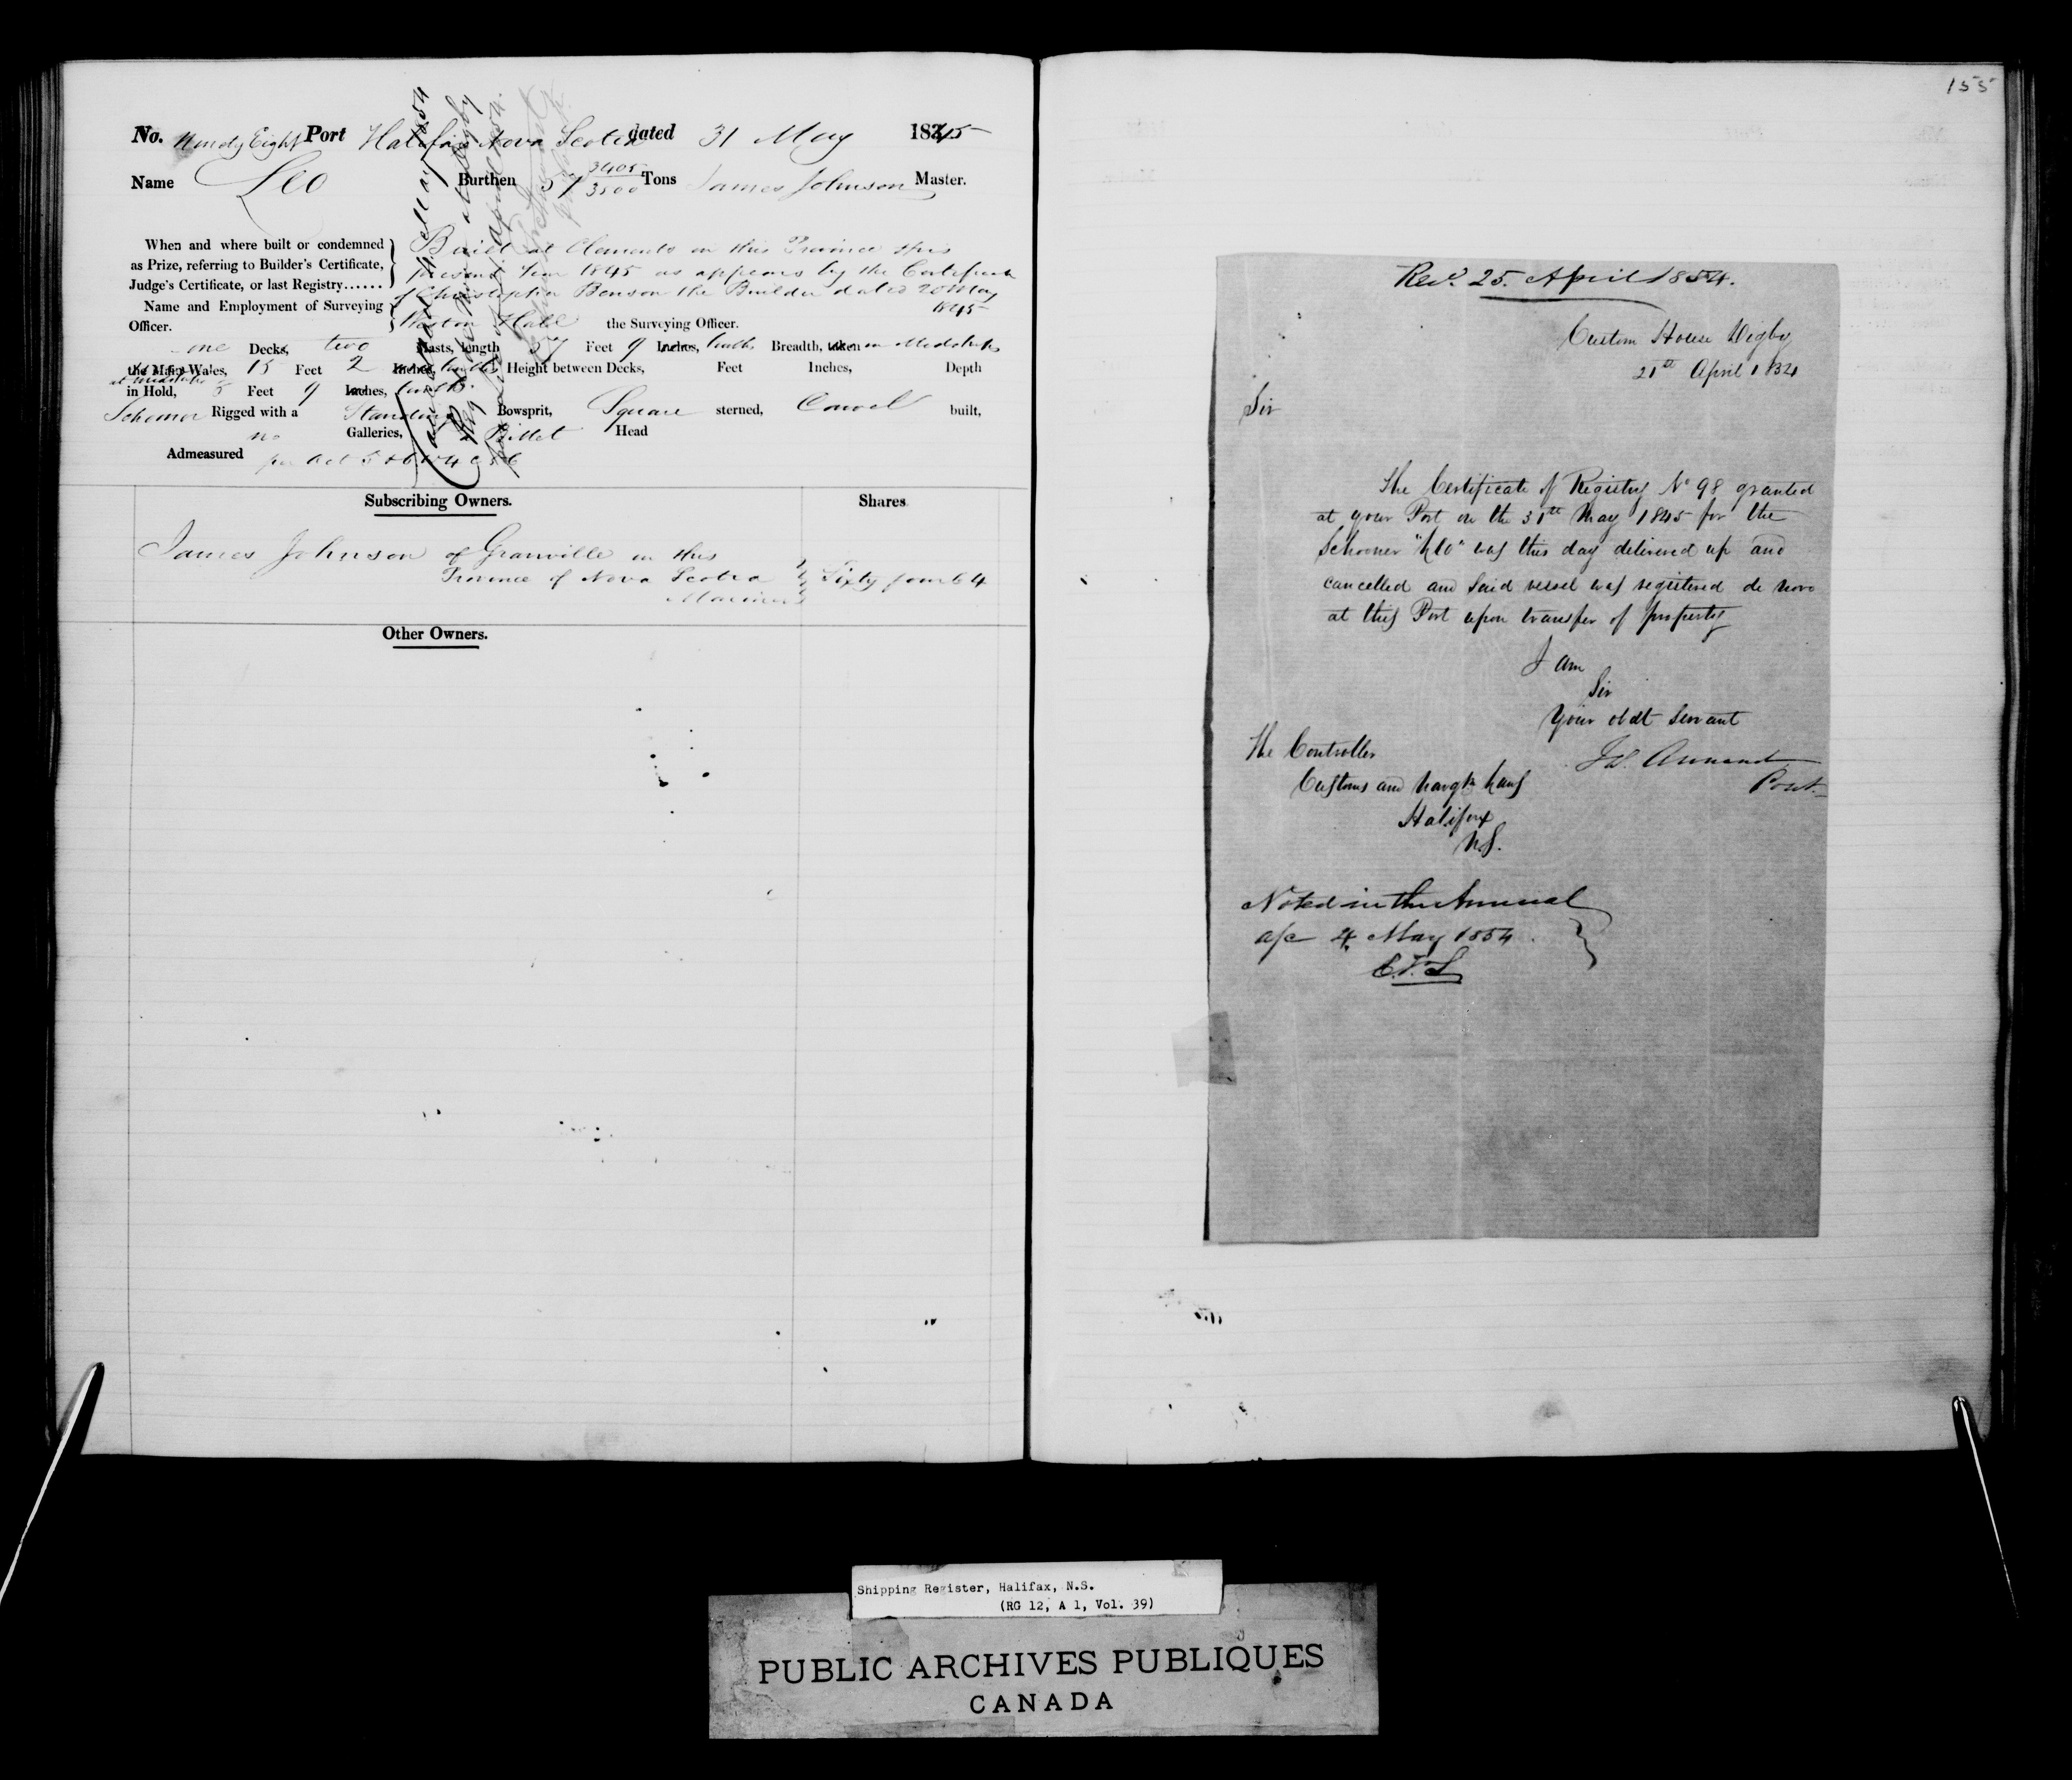 No. Ninety Eight Port Halifax Nova Scotia dated 31 May 1845
Name Leo Burthen 57 3405/3500 Tons James Johnson Master.
When and where built or condemned
as Prize, referring to Builder's Certificate,
Judge's Certificate, or last Registry......
Built at Clements in this Province this
present Year 1845 as appears by the Certificate
of Christopher Benson the Builder dated 20 May
1845
Name and Employment of Surveying
Officer.
Weston Hall the Surveying Officer.
one Decks, two Masts, length 57 Feet 9 Inches, tenths Breadth, taken in Midships
the Main Wales, 15 Feet 2 Inches, tenths Height between Decks, Feet Inches, Depth
at midships
in Hold, Feet 9 Inches, tenths
Schooner Rigged with a Standing Bowsprit, Square sterned, Carvel built,
no Galleries, Billet Head
Admeasured per Act
Subscribing Owners. Shares
James Johnson of Granville in this
Province of Nova Scotia Sixty four 64
Mariner
Other Owners.
155
Recd. 25. April 1854.
Custom House Digby
21th April 1854
Sir
The Certificate of Registry No 98 granted
at your Port on the 31th May 1845 for the
Schooner "Leo" was this day delivered up and
cancelled and said vessel was registered de novo
at this Port upon transfer of property
I am
Sir
Your obdt Servant
The Controller
Customs and Navgtn Laws
Halifax
N.S.
Noted in the Annual
a/c 4 May 1854.
Shipping Register, Halifax, N.S.
(RG 12, A 1, Vol. 39)
PUBLIC ARCHIVES PUBLIQUES
CANADA